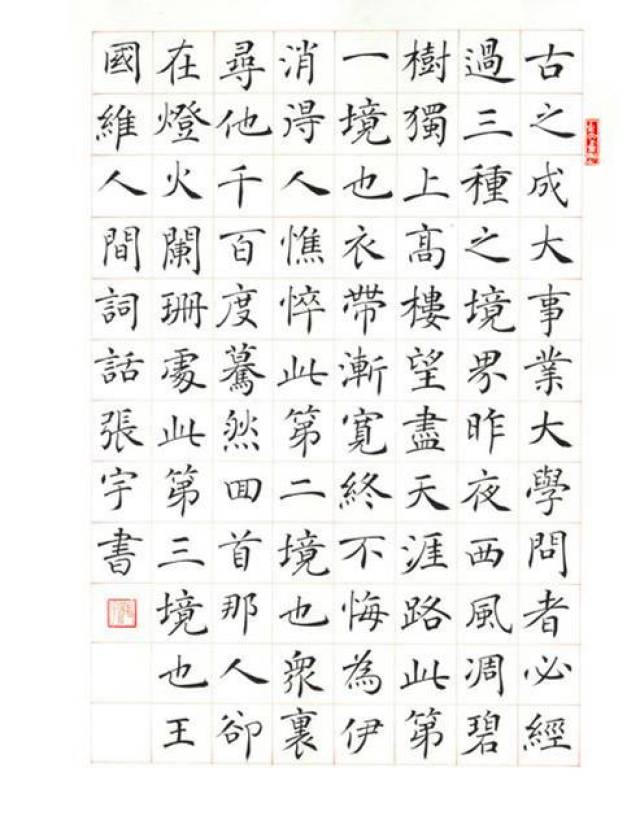 古之成大事業大學問者必經
過三種之境界昨夜西風凋碧
樹獨上高樓望盡天涯路此第
一境也衣帶漸寬終不悔為伊
消得人憔悴此第二境也眾裏
尋他千百度驀然回首那人卻
在燈火闌珊處此第三境也王
國維人間詞話張宇書